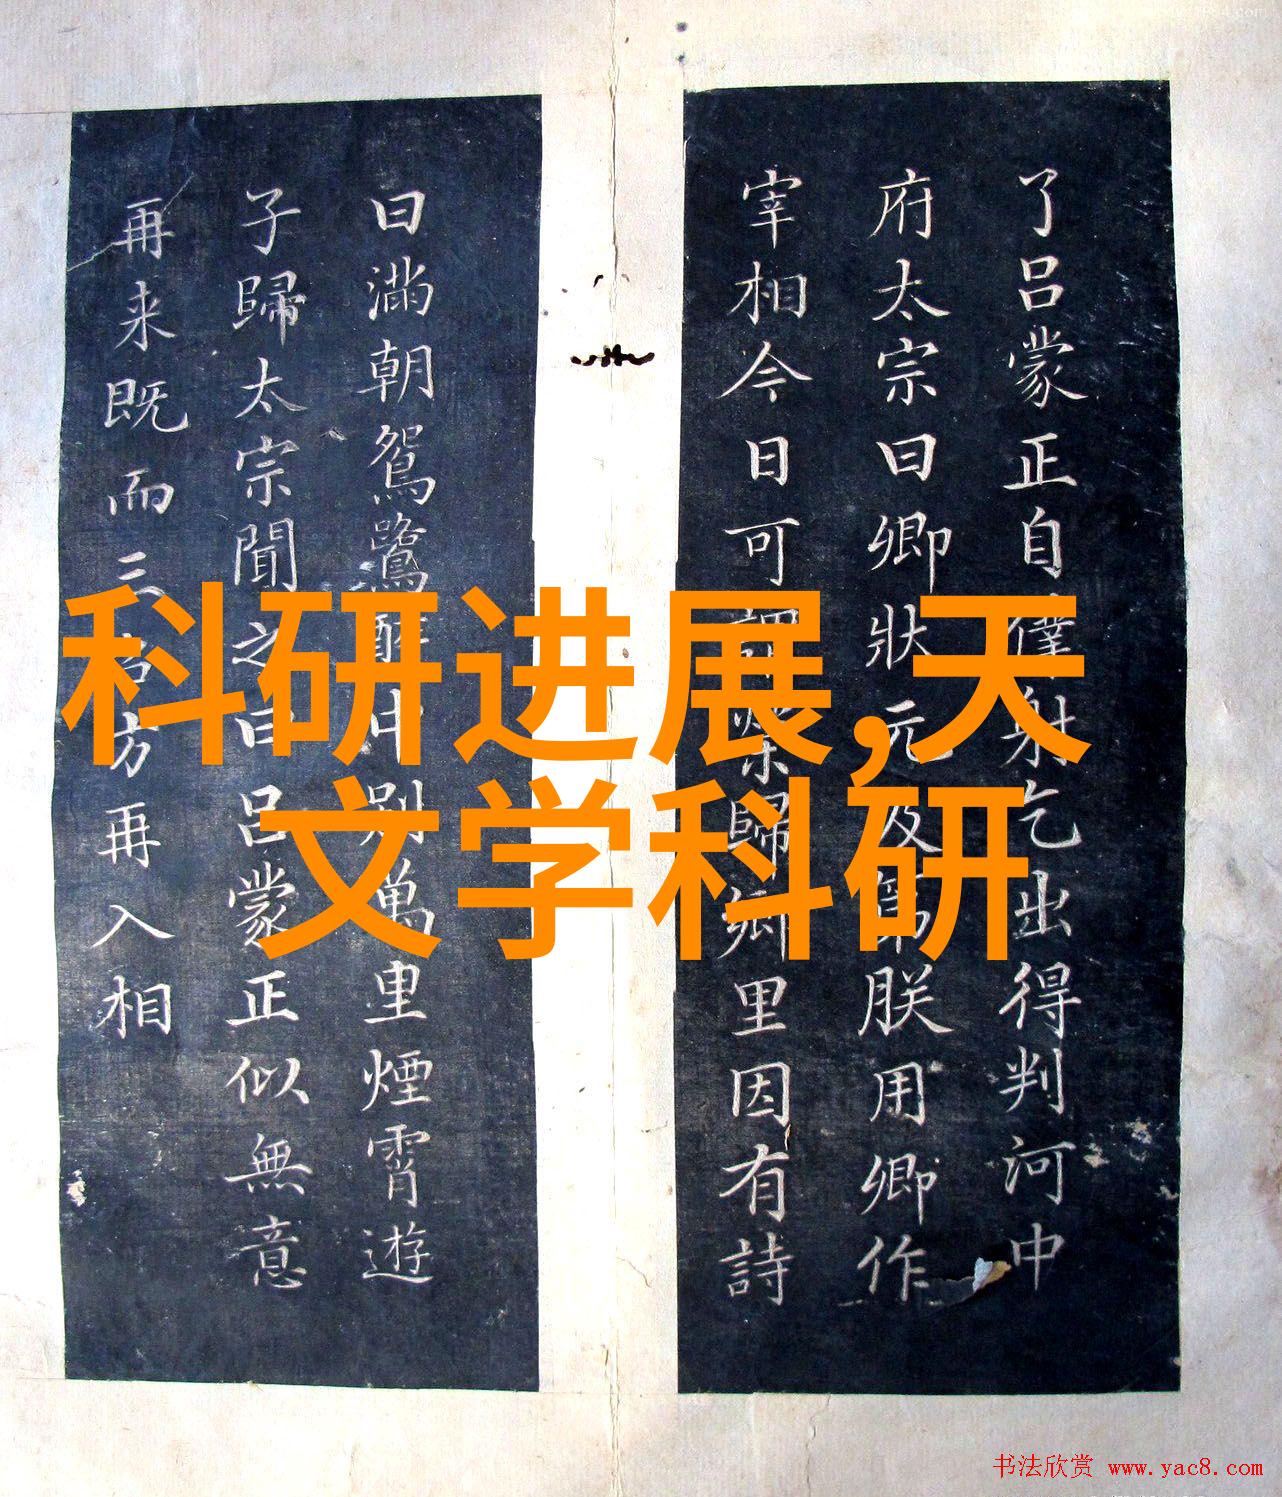 了呂蒙正自僕射乞出得判河中
府太宗曰卿狀元及第朕用卿作
宰相今日可謂榮歸鄉里因有詩
曰滿朝鴛鷺醉中別萬里煙霄遊
子歸太宗聞之曰呂蒙正似無意
再来既而三方再入相
科研进展,天
文学科研
书法欣赏 www.yac8.com